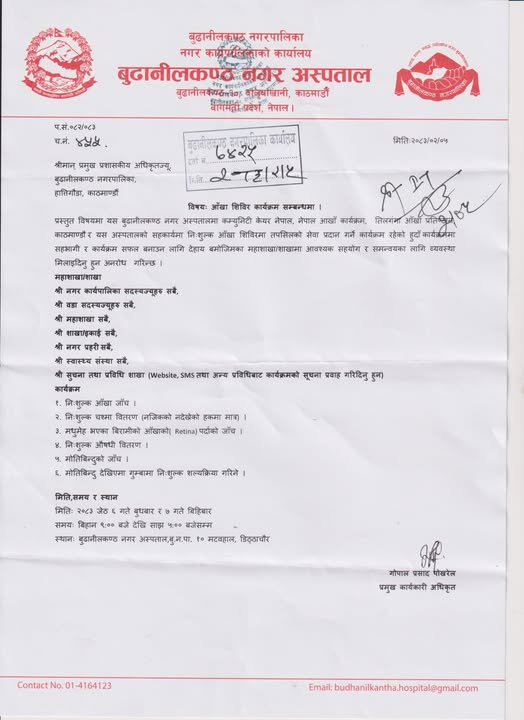 बुढानीलकण्ठ नगरपालिका
नगर कार्यपालिकाको कार्यालय
बुढानीलकण्ठ नगर अस्पताल
बुढानीलकण्ठ १०, काठमाडौं
बागमती प्रदेश, नेपाल ।
प.सं.०८२/०८३
च.नं. ४५५
बुढानीलकण्ठ नगरपालिका कार्यालय
दर्ता नं. ७४२५
मिति:
मिति:२०८३/०२/०५
श्रीमान् प्रमुख प्रशासकीय अधिकृतज्यू,
बुढानीलकण्ठ नगरपालिका,
हात्तिगौंडा, काठमाण्डौं
विषयः आँखा शिविर कार्यक्रम सम्बन्धमा ।
प्रस्तुत विषयमा यस बुढानीलकण्ठ नगर अस्पतालमा कम्युनिटि केयर नेपाल, नेपाल आखाँ कार्यक्रम, तिलगंगा आँखा
काठमाण्डौ र यस अस्पतालको सहकार्यमा निःशुल्क आँखा शिविरमा तपसिलको सेवा प्रदान गर्ने कार्यक्रम रहेको हुदाँ कार्यक्रममा
सहभागी र कार्यक्रम सफल बनाउन लागि देहाय बमोजिमका महाशाखा/शाखामा आवश्यक सहयोग र समन्वयका लागि व्यवस्था
मिलाइदिनु हुन अनरोध गरिन्छ ।
महाशाखा/शाखा
श्री नगर कार्यपालिका सदस्यज्यूहरु सबै,
श्री वडा सदस्यज्यूहरु सबै,
श्री महाशाखा सबै,
श्री शाखा/इकाई सबै,
श्री नगर प्रहरी सबै,
श्री स्वास्थ्य संस्था सबै,
श्री सुचना तथा प्रविधि शाखा (Website, SMS तथा अन्य प्रविधिबाट कार्यक्रमको सूचना प्रवाह गरिदिनु हुन)
कार्यक्रम
१. निःशुल्क आँखा जाँच ।
२. निःशुल्क चश्मा वितरण (नजिकको नदेखेको हकमा मात्र) ।
३. मधुमेह भएका बिरामीको आँखाको( Retina) पर्दाको जाँच ।
४. निःशुल्क औषधी वितरण ।
५. मोतिबिन्दुको जाँच ।
६. मोतिबिन्दु देखिएमा गुम्बामा निःशुल्क शल्यक्रिया गरिने ।
मिति,समय र स्थान
मितिः २०८३ जेठ ६ गते बुधबार र ७ गते बिहिबार
समयः बिहान ९:०० बजे देखि साझ ५:०० बजेसम्म
स्थानः बुढानीलकण्ठ नगर अस्पताल,बु.न.पा. १० मटवहाल, डिठ्ठाचौर
गोपाल प्रसाद पोखरेल
प्रमुख कार्यकारी अधिकृत
Contact No. 01-4164123
Email: budhanilkantha.hospital@gmail.com